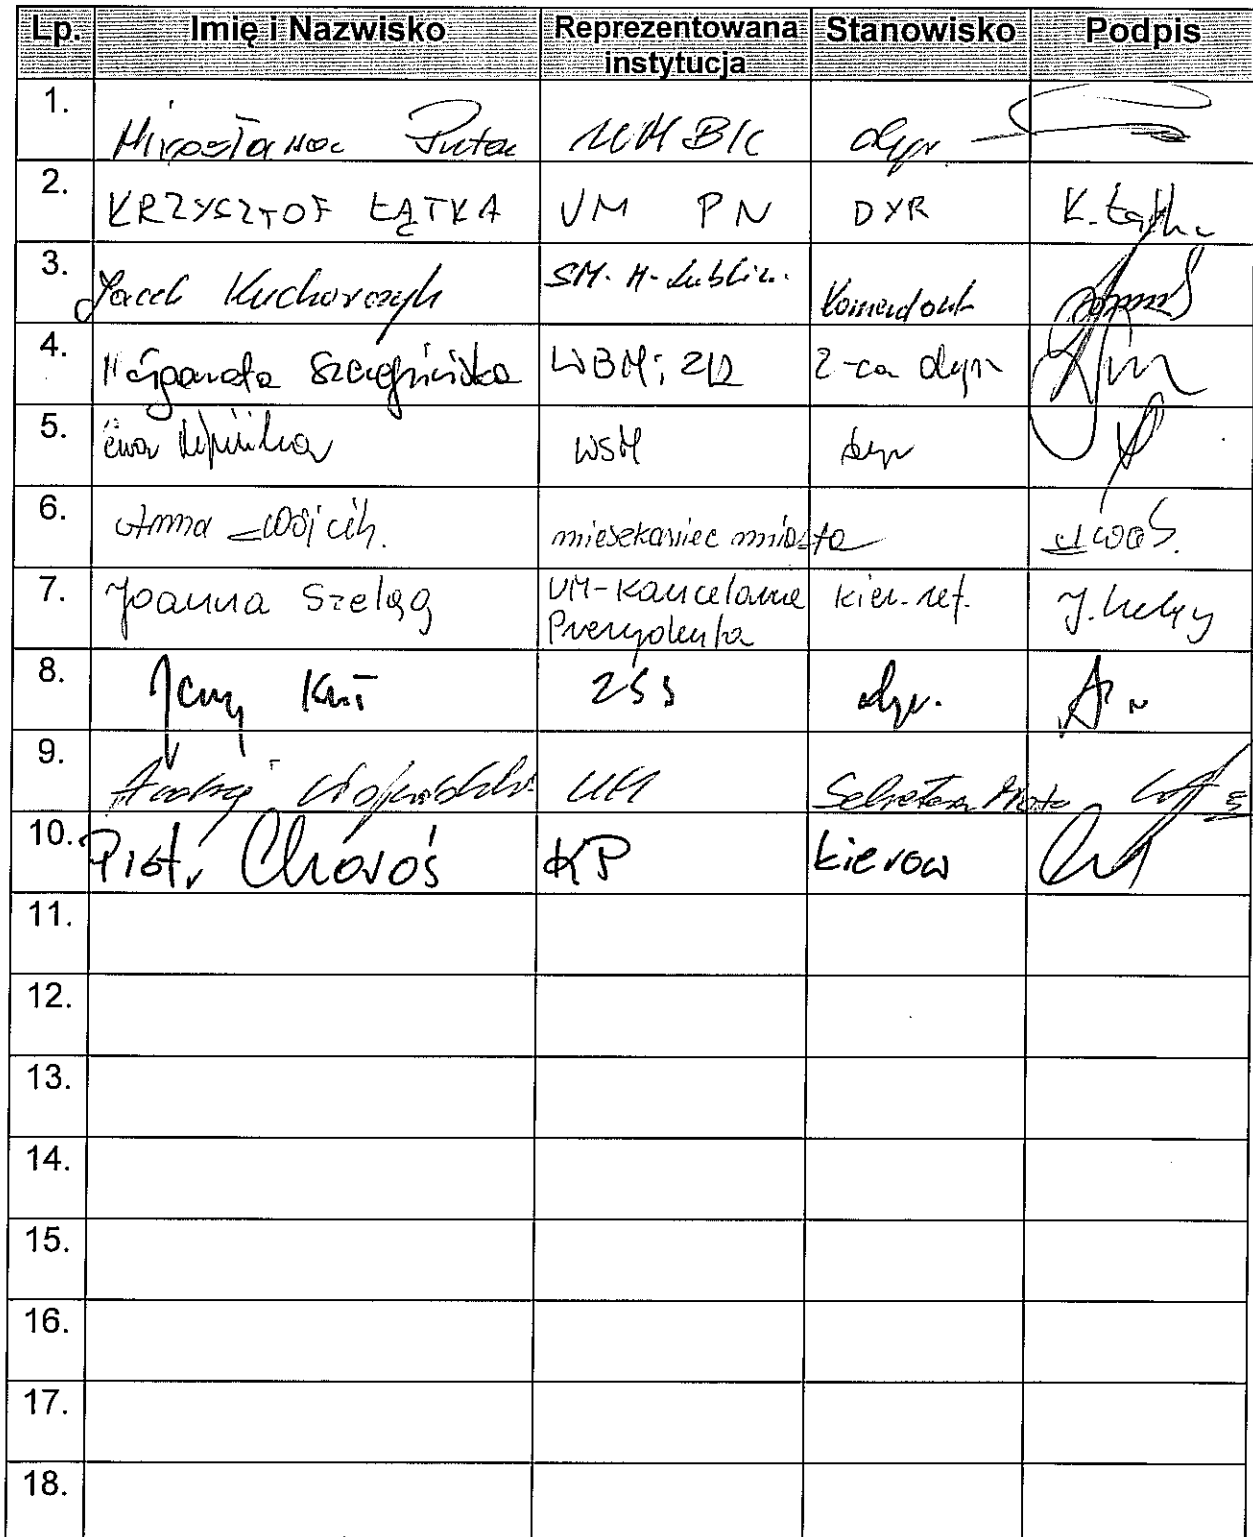 Lp. Imię i Nazwisko Reprezentowana instytucja Stanowisko Podpis
1. Mirosława Puta UM BK dyr.
2. KRZYSZTOF ŁĄTKA UM PN DYR K. Łątka
3. Jacek Kucharczyk SM. M. Lublin. Komendant
4. Małgorzata WBMiZD Z-ca dyr
5. Ewa WSM dyr
6. Anna Wójcik. mieszkaniec miasta
7. Joanna Szeląg UM-Kancelaria Prezydenta kier. ref. J. Szeląg
8. Jerzy Kuś ZSS dyr.
9. Andrzej UM Sekretarz Miasta
10. Piotr Choroś KP kierow
11.
12.
13.
14.
15.
16.
17.
18.